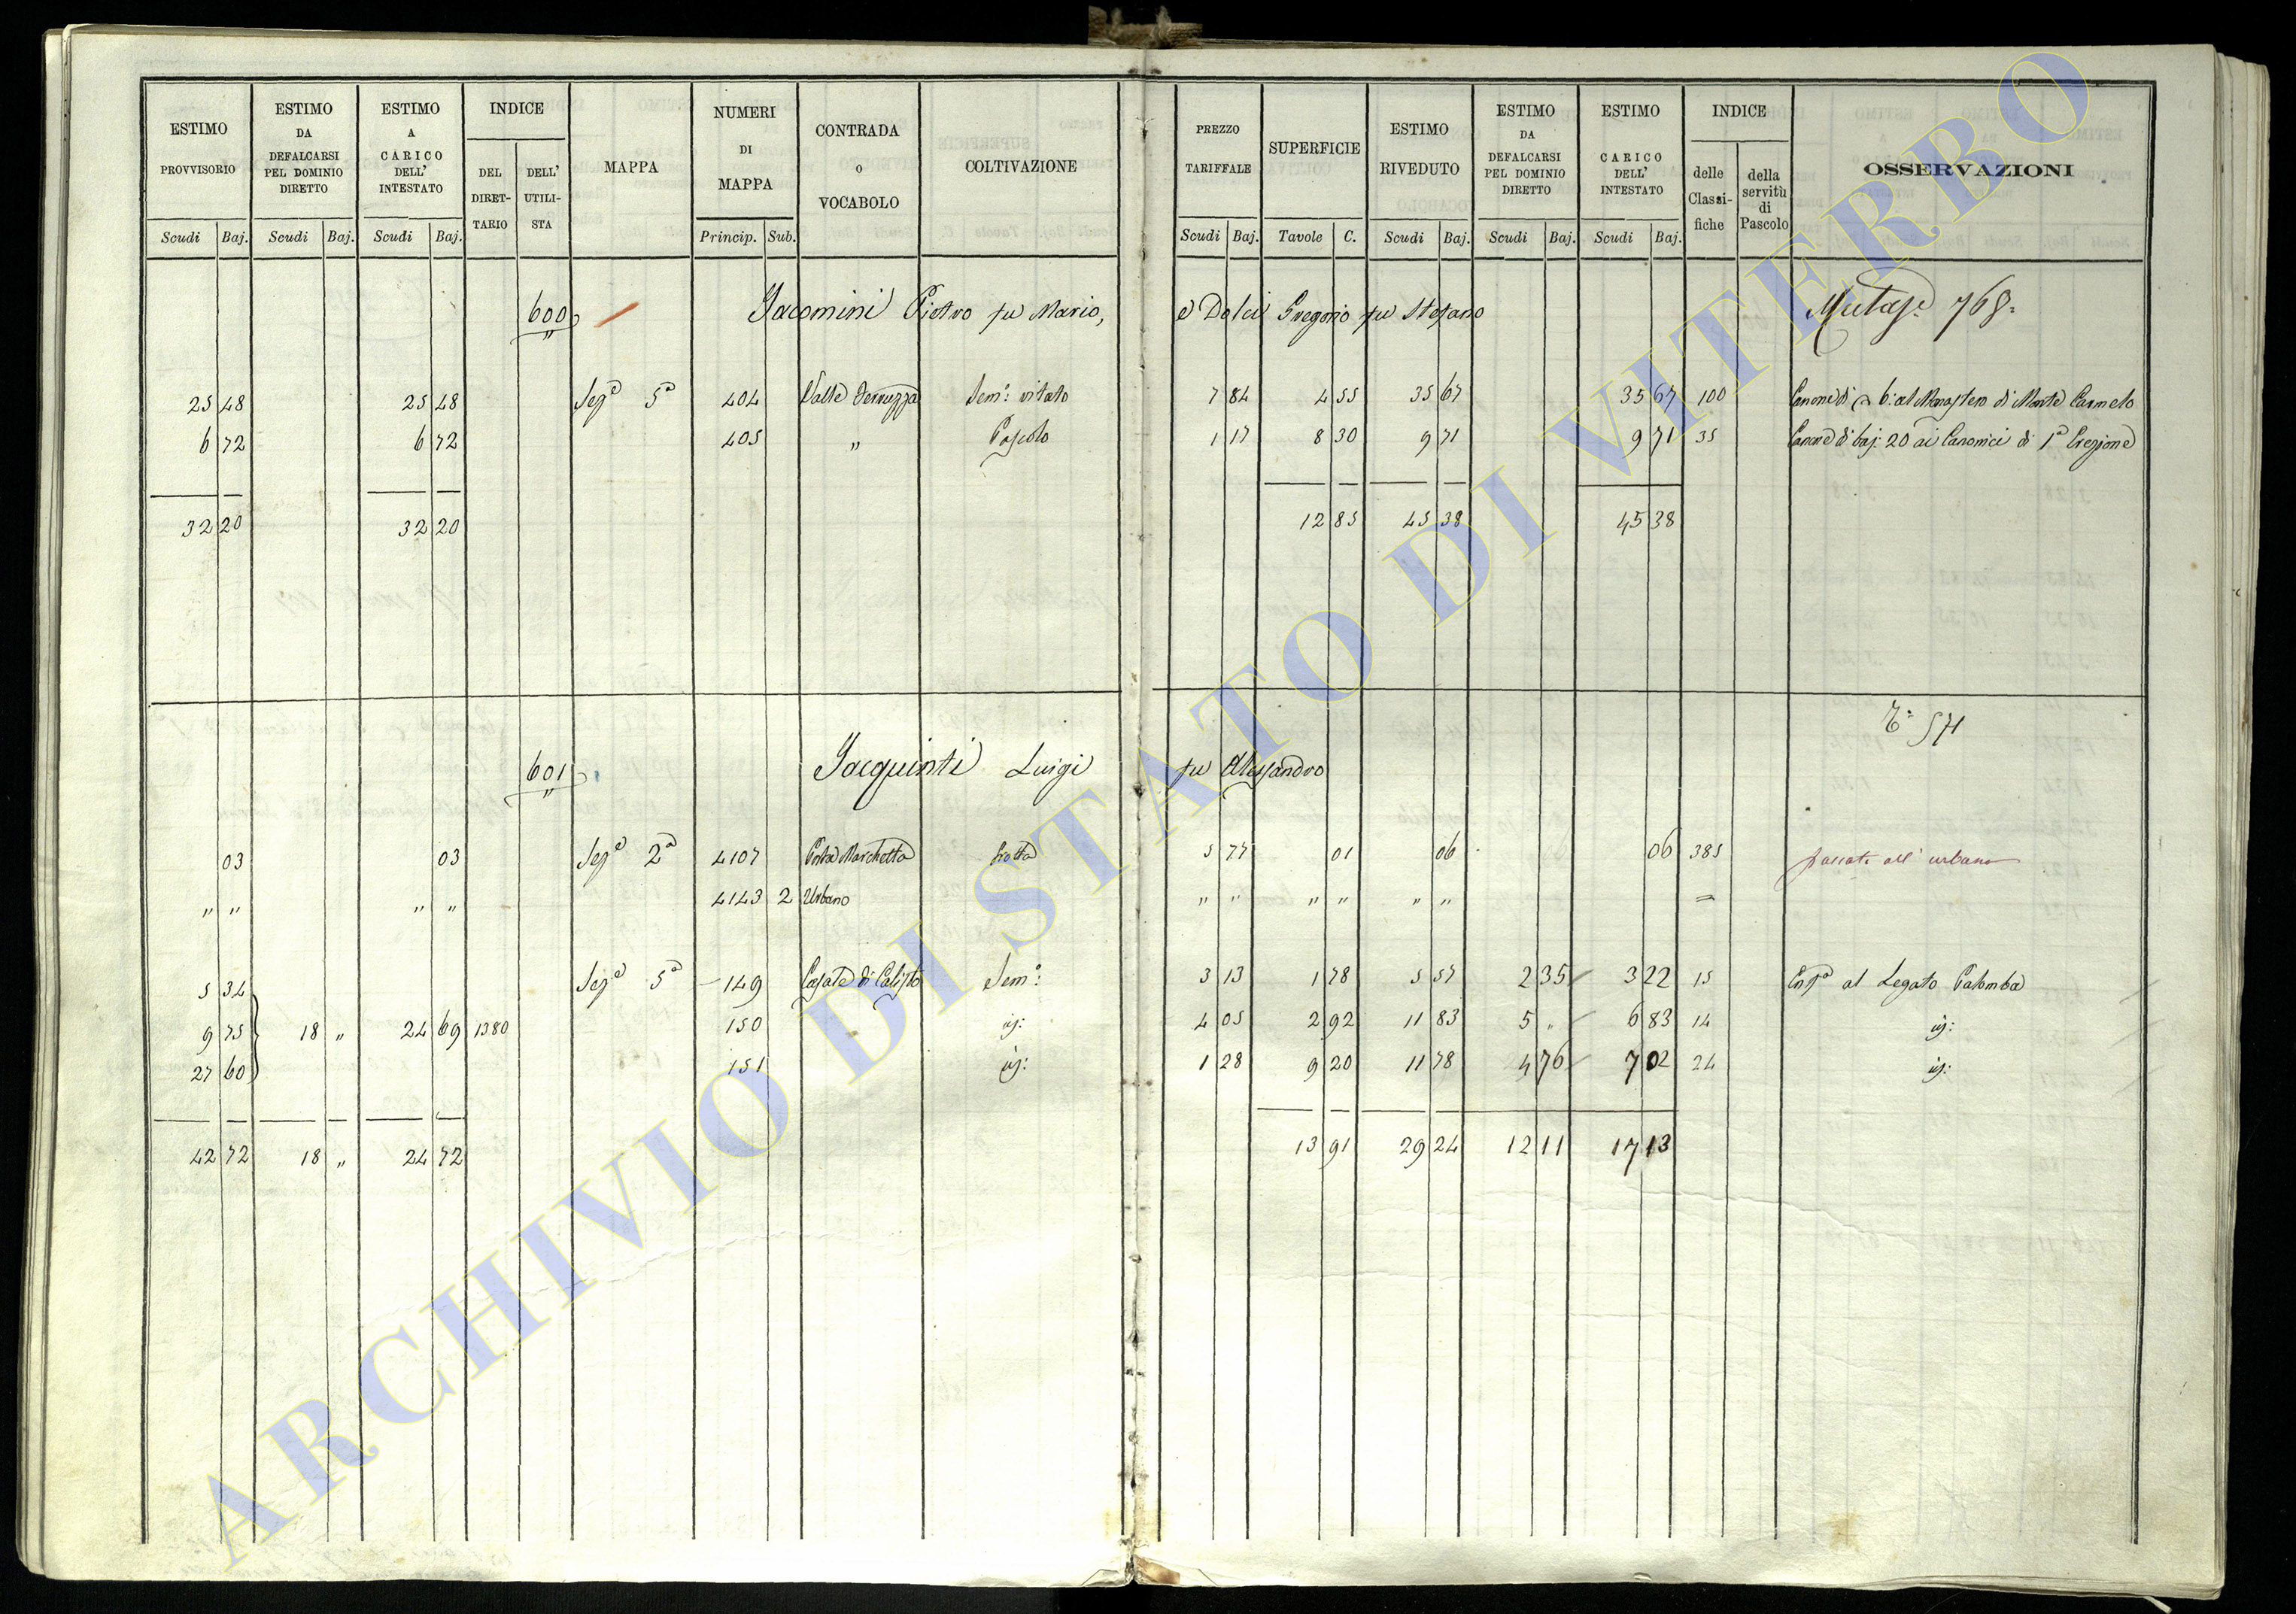 ESTIMO PROVVISORIO | ESTIMO DA DEFALCARSI PEL DOMINIO DIRETTO | ESTIMO A CARICO DELL' INTESTATO | INDICE | MAPPA | NUMERI DI MAPPA | CONTRADA o VOCABOLO | COLTIVAZIONE | PREZZO TARIFFALE | SUPERFICIE | ESTIMO RIVEDUTO | ESTIMO DA DEFALCARSI PEL DOMINIO DIRETTO | ESTIMO A CARICO DELL' INTESTATO | INDICE | OSSERVAZIONI
DEL DIRET-TARIO | DELL' UTILI-STA | delle Classi-fiche | della servitù di Pascolo
Scudi | Baj. | Scudi | Baj. | Scudi | Baj. | Princip. | Sub. | Scudi | Baj. | Tavole | C. | Scudi | Baj. | Scudi | Baj. | Scudi | Baj.
600 Jacomini Pietro fu Mario, e Dolci Gregorio fu Stefano 768
25 48 25 48 Sezᵉ 5ª 404 Valle Sem: vitato 7 84 4 55 35 67 35 67 100 Canone di 6: al Monastero di Monte Carmelo
6 72 6 72 405 " Pascolo 1 17 8 30 9 71 9 71 35 Canone di baj: 20 ai Canonici di 1ª Erezione
32 20 32 20 12 85 45 38 45 38
571
601 Jacquinti Luigi fu Alessandro
03 03 Sezᵉ 2ª 4107 Porta Marchetta Grotta 5 77 01 06 06 385 passato all' urbano
" " " " 4143 2 Urbano " " " " " " =
5 34 Sezᵉ 5ª 149 Casale di Calisto Sem: 3 13 1 78 5 57 2 35 3 22 15 Enfª al Legato Palomba
9 75 18 " 24 69 1380 150 id: 4 05 2 92 11 83 5 " 6 83 14 id:
27 60 151 id: 1 28 9 20 11 78 4 76 7 02 24 id:
42 72 18 " 24 72 13 91 29 24 12 11 17 13
ARCHIVIO DI STATO DI VITERBO